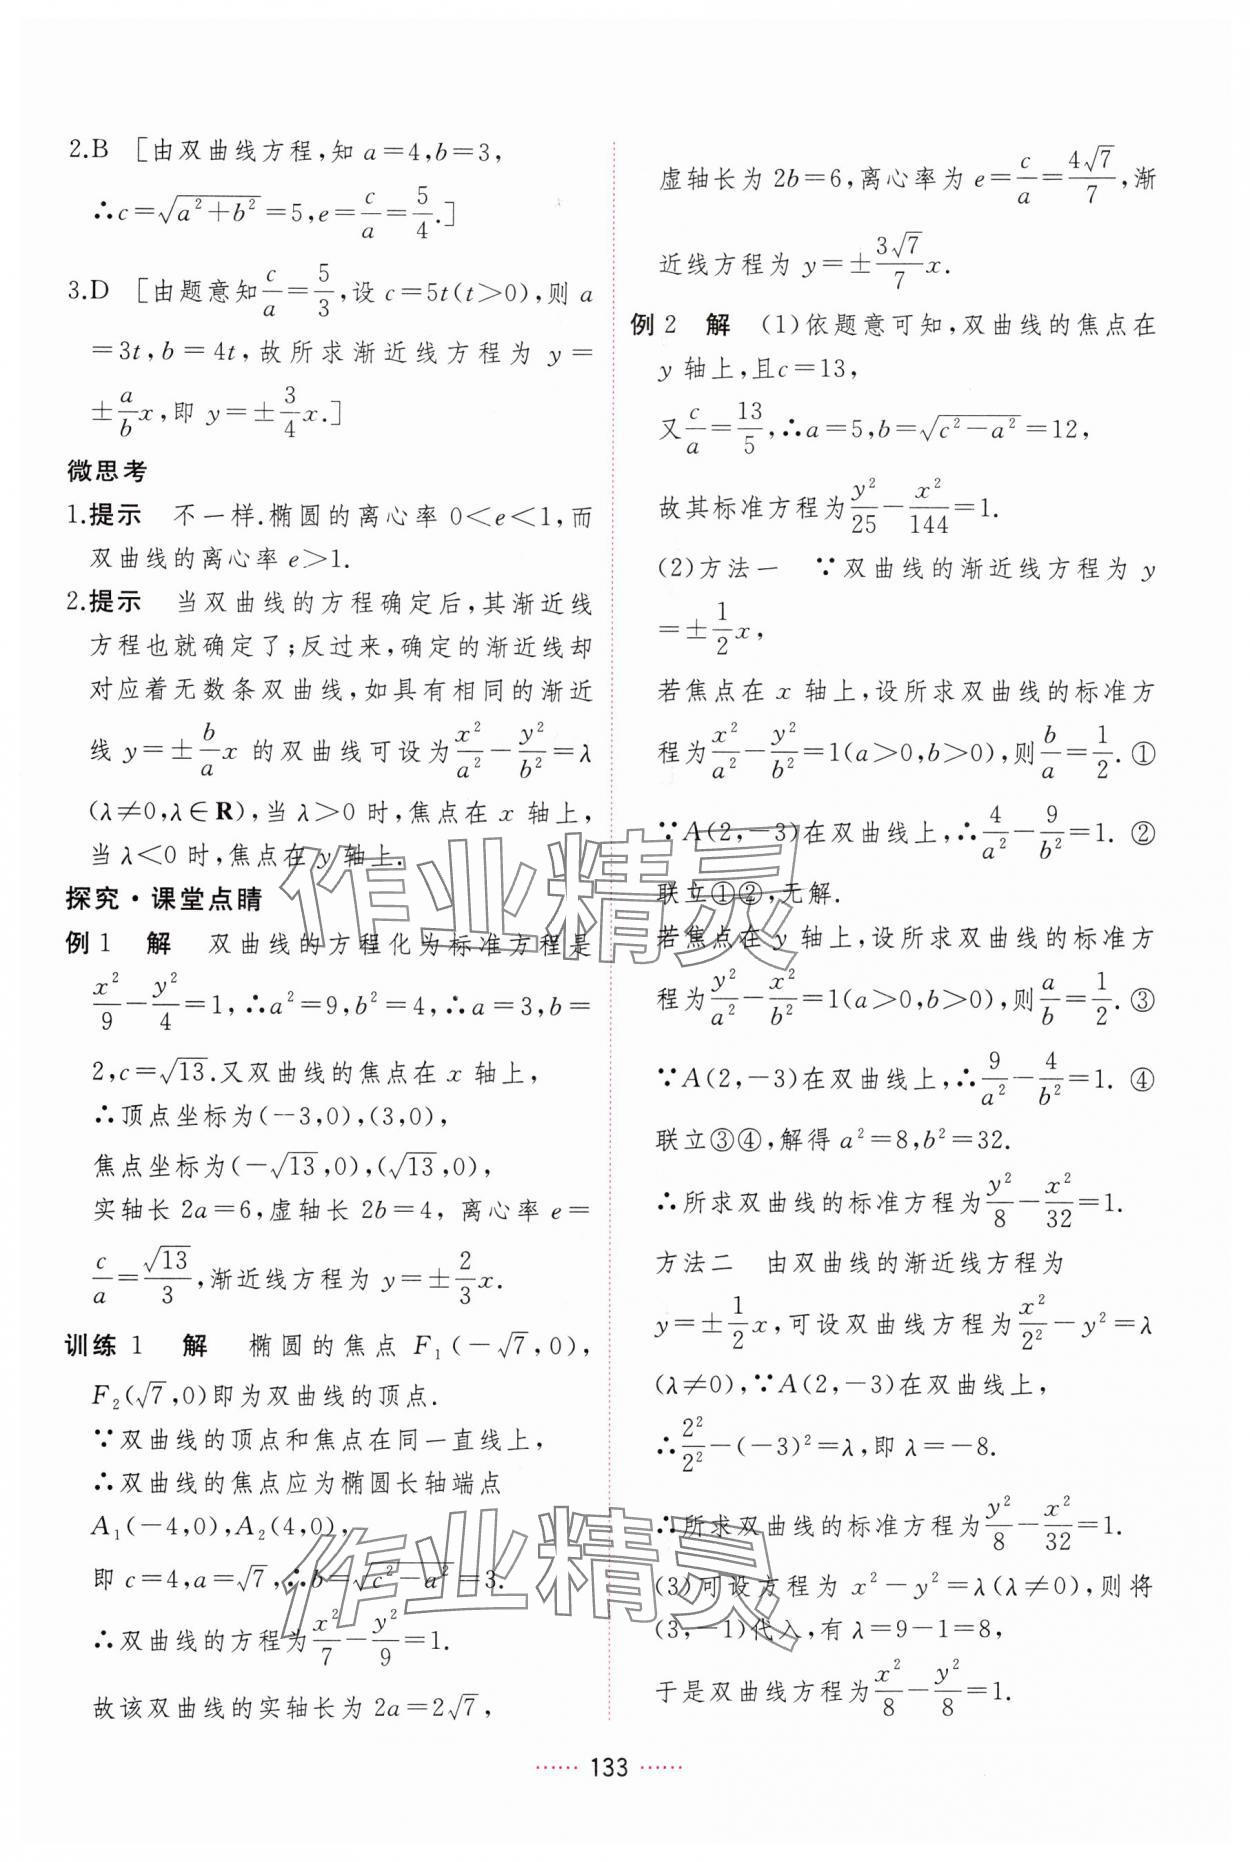 2.B [由双曲线方程,知 a=4,b=3,
∴c=√(a²+b²)=5,e=c/a=5/4.]
3.D [由题意知c/a=5/3,设 c=5t(t>0),则 a
=3t,b=4t,故所求渐近线方程为 y=
±a/b x,即 y=±3/4 x.]
微思考
1.提示 不一样.椭圆的离心率 0<e<1,而
双曲线的离心率 e>1.
2.提示 当双曲线的方程确定后,其渐近线
方程也就确定了;反过来,确定的渐近线却
对应着无数条双曲线,如具有相同的渐近
线 y=±b/a x 的双曲线可设为x²/a²-y²/b²=λ
(λ≠0,λ∈R),当 λ>0 时,焦点在 x 轴上,
当 λ<0 时,焦点在 y 轴上.
探究·课堂点睛
例 1 解 双曲线的方程化为标准方程是
x²/9-y²/4=1,∴a²=9,b²=4,∴a=3,b=
2,c=√13.又双曲线的焦点在 x 轴上,
∴顶点坐标为(-3,0),(3,0),
焦点坐标为(-√13,0),(√13,0),
实轴长 2a=6,虚轴长 2b=4,离心率 e=
c/a=√13/3,渐近线方程为 y=±2/3 x.
训练 1 解 椭圆的焦点 F₁(-√7,0),
F₂(√7,0)即为双曲线的顶点.
∵双曲线的顶点和焦点在同一直线上,
∴双曲线的焦点应为椭圆长轴端点
A₁(-4,0),A₂(4,0),
即 c=4,a=√7,∴b=√(c²-a²)=3.
∴双曲线的方程为x²/7-y²/9=1.
故该双曲线的实轴长为 2a=2√7,
虚轴长为 2b=6,离心率为 e=c/a=4√7/7,渐
近线方程为 y=±3√7/7 x.
例 2 解 (1)依题意可知,双曲线的焦点在
y 轴上,且c=13,
又c/a=13/5,∴a=5,b=√(c²-a²)=12,
故其标准方程为y²/25-x²/144=1.
(2)方法一 ∵双曲线的渐近线方程为 y
=±1/2 x,
若焦点在 x 轴上,设所求双曲线的标准方
程为x²/a²-y²/b²=1(a>0,b>0),则b/a=1/2. ①
∵A(2,-3)在双曲线上,∴4/a²-9/b²=1. ②
联立①②,无解.
若焦点在 y 轴上,设所求双曲线的标准方
程为y²/a²-x²/b²=1(a>0,b>0),则a/b=1/2. ③
∵A(2,-3)在双曲线上,∴9/a²-4/b²=1. ④
联立③④,解得 a²=8,b²=32.
∴所求双曲线的标准方程为y²/8-x²/32=1.
方法二 由双曲线的渐近线方程为
y=±1/2 x,可设双曲线方程为x²/2²-y²=λ
(λ≠0),∵A(2,-3)在双曲线上,
∴2²/2²-(-3)²=λ,即 λ=-8.
∴所求双曲线的标准方程为y²/8-x²/32=1.
(3)可设方程为 x²-y²=λ(λ≠0),则将
(3,-1)代入,有 λ=9-1=8,
于是双曲线方程为x²/8-y²/8=1.
······ 133 ······
作业精灵
作业精灵